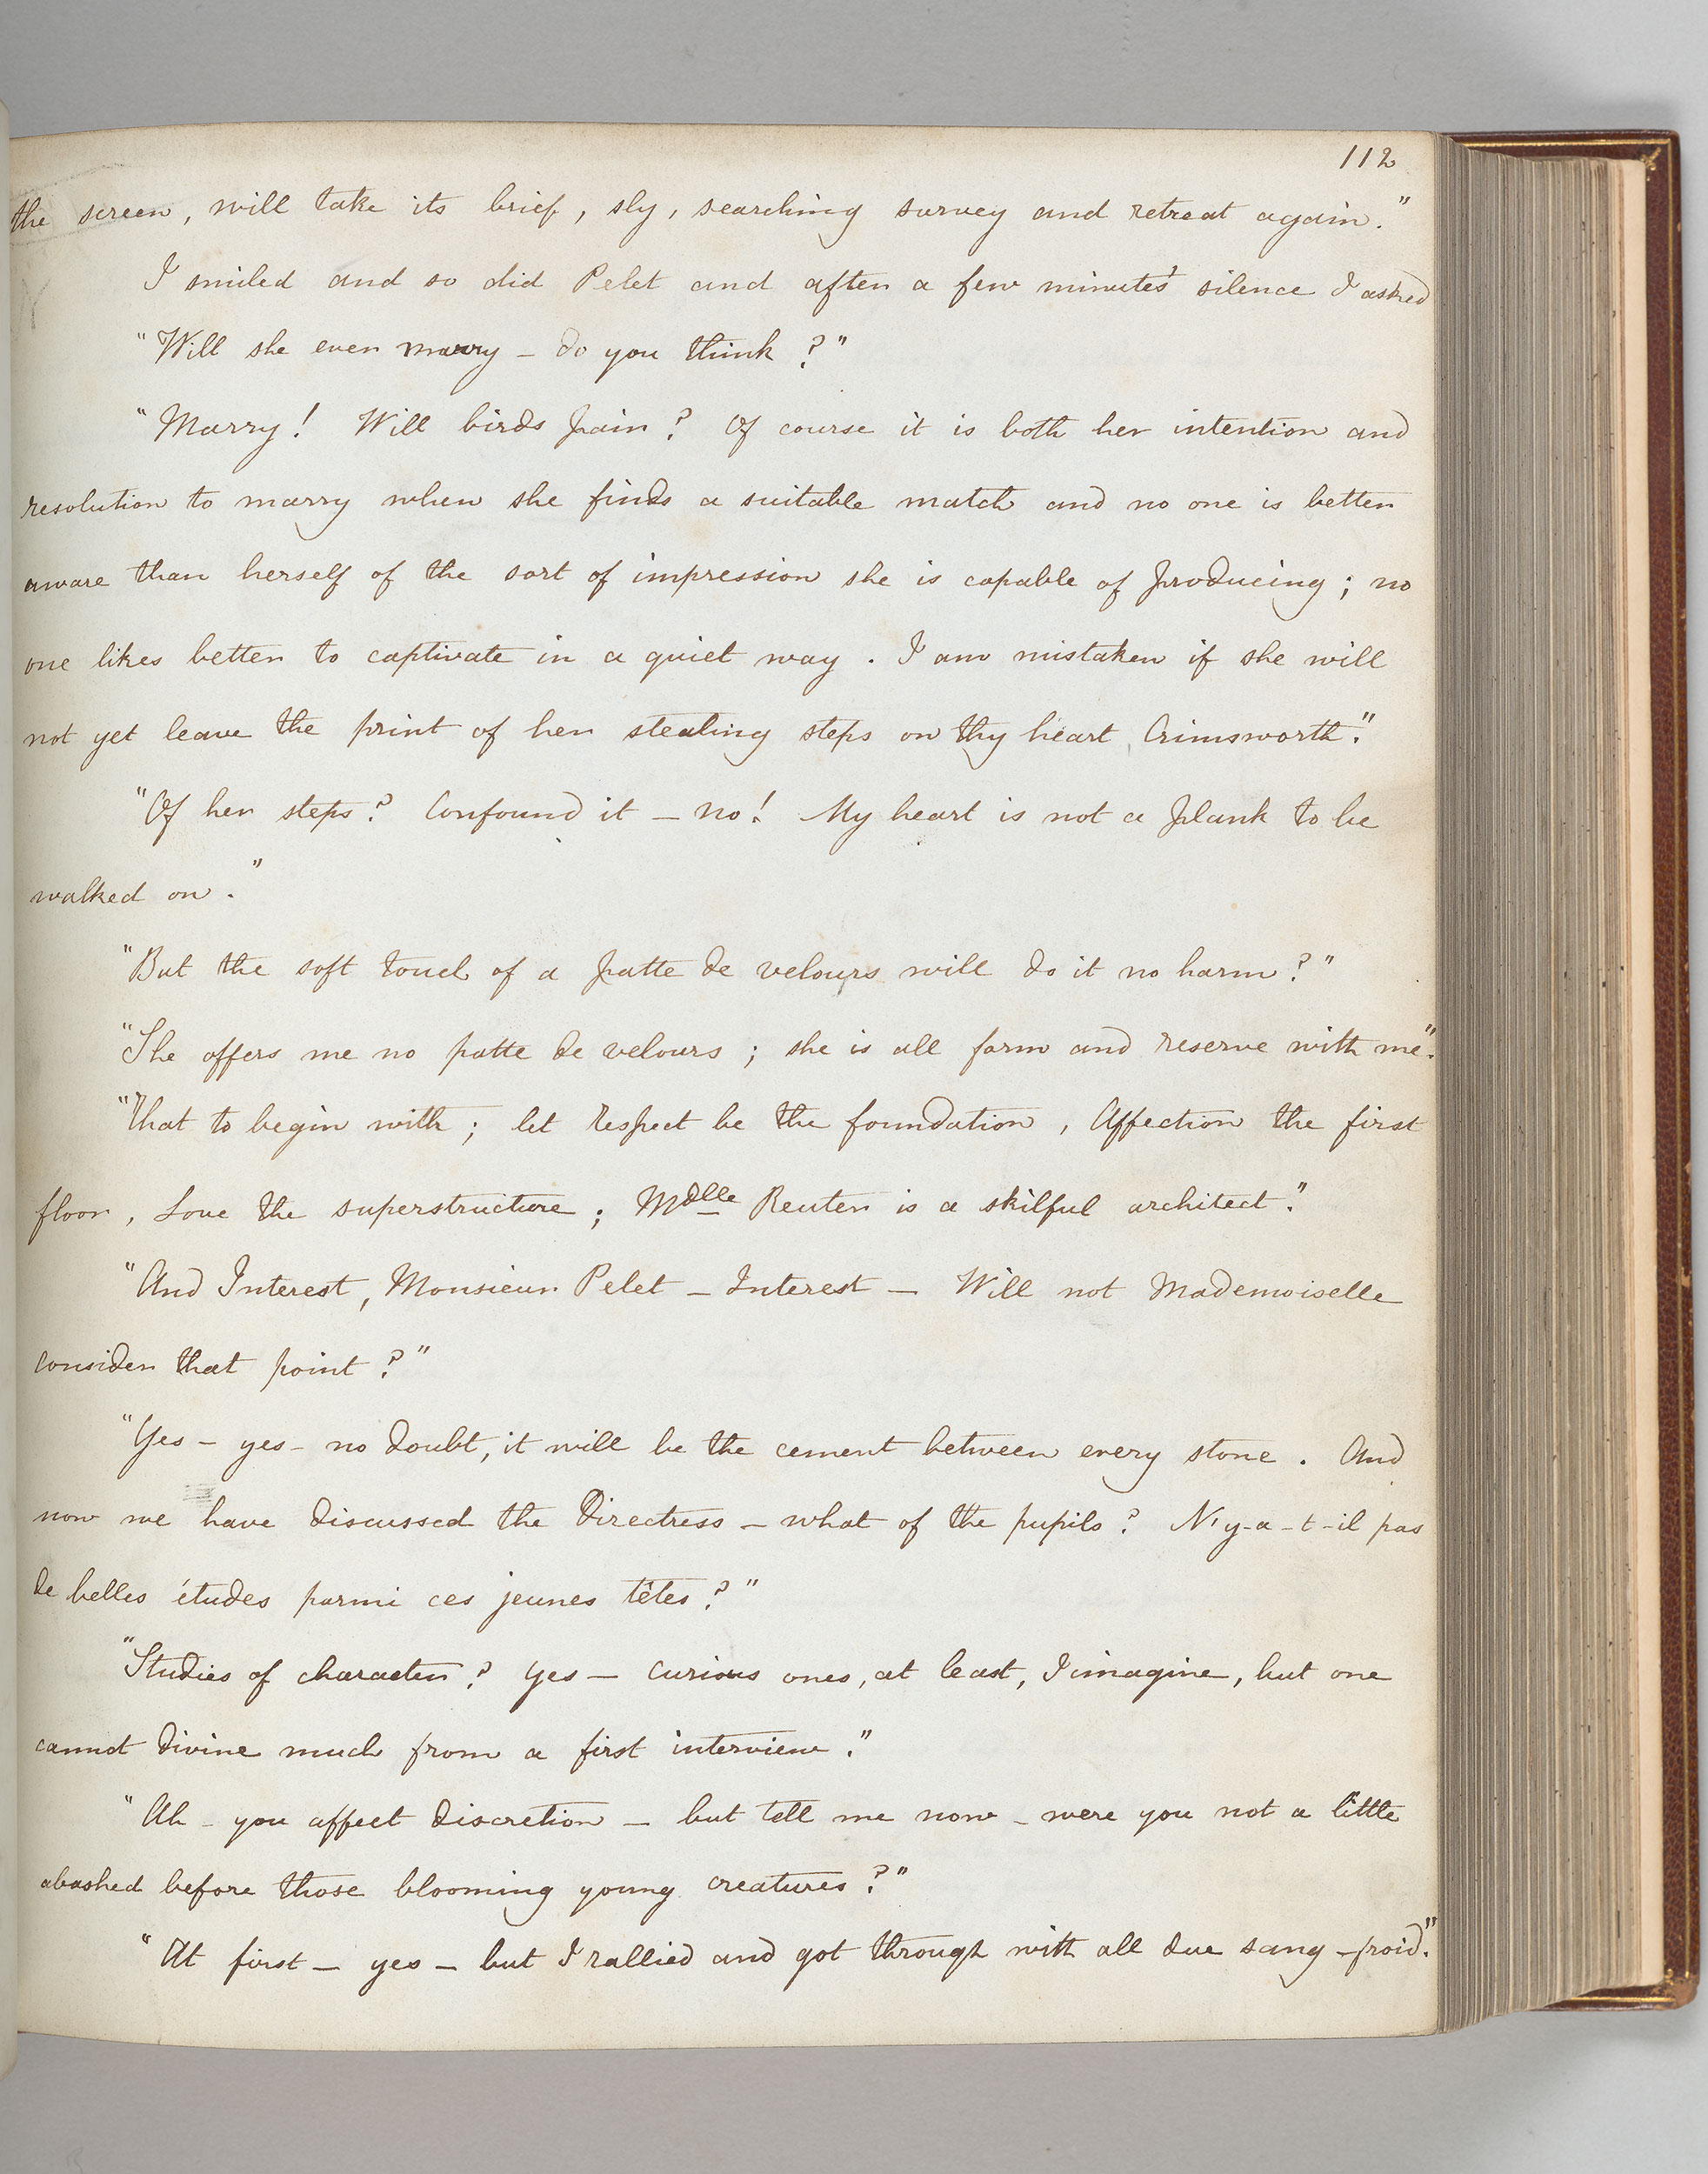 112
the screen, will take its brief, sly, searching survey and retreat again."
I smiled and so did Pelet and after a few minutes' silence I asked
"Will she ever marry – do you think?"
"Marry! Will birds pair? Of course it is both her intention and
resolution to marry when she finds a suitable match and no one is better
aware than herself of the sort of impression she is capable of producing; no
one likes better to captivate in a quiet way. I am mistaken if she will
not yet leave the print of her stealing steps on thy heart, Crimsworth."
"Of her steps? Confound it – no! My heart is not a plank to be
walked on."
"But the soft touch of a patte de velours will do it no harm?"
"She offers me no patte de velours; she is all form and reserve with me."
"That to begin with; let respect be the foundation, Affection the first
floor, Love the superstructure; Mdlle Reuter is a skilful architect."
"And Interest, Monsieur Pelet – Interest – Will not Mademoiselle
consider that point?"
"Yes – yes – no doubt, it will be the cement between every stone. And
now we have discussed the Directress – what of the pupils? N'y-a-t-il pas
de belles études parmi ces jeunes têtes?"
"Studies of character? Yes – curious ones, at least, I imagine, but one
cannot divine much from a first interview."
"Ah – you affect discretion – but tell me now – were you not a little
abashed before those blooming young creatures?"
"At first – yes – but I rallied and got through with all due sang-froid."